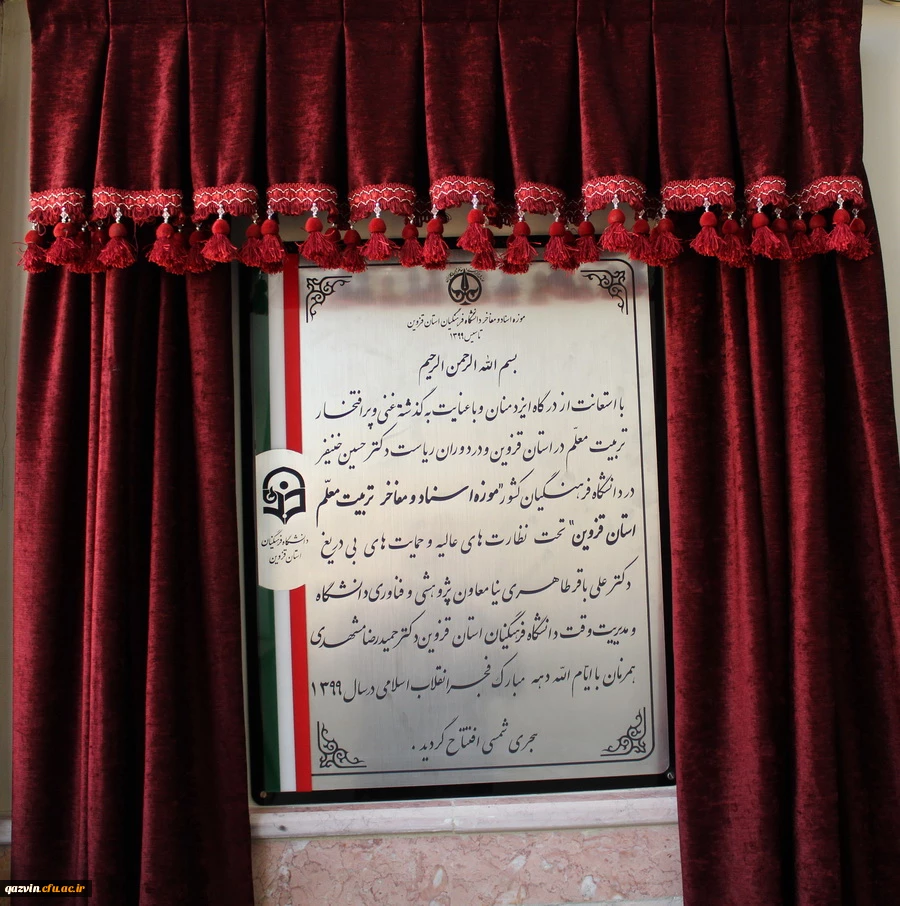 موزه اسناد و مفاخر دانشگاه فرهنگیان استان قزوین
تاسیس ۱۳۹۹
بسم الله الرحمن الرحیم
با استعانت از درگاه ایزد منان و با عنایت به گذشته غنی و پر افتخار
تربیت معلّم در استان قزوین و در دوران ریاست دکتر حسین خنیفر
در دانشگاه فرهنگیان کشور "موزه اسناد و مفاخر تربیت معلّم
استان قزوین" تحت نظارت های عالیه و حمایت های بی دریغ
دکتر علی باقر طاهری نیا معاون پژوهشی و فناوری دانشگاه
و مدیریت وقت دانشگاه فرهنگیان استان قزوین دکتر حمیدرضا مشهدی
همزمان با ایّام الله دهه مبارک فجر انقلاب اسلامی در سال ۱۳۹۹
هجری شمسی افتتاح گردید .
دانشگاه فرهنگیان
استان قزوین
qazvin.cfu.ac.ir